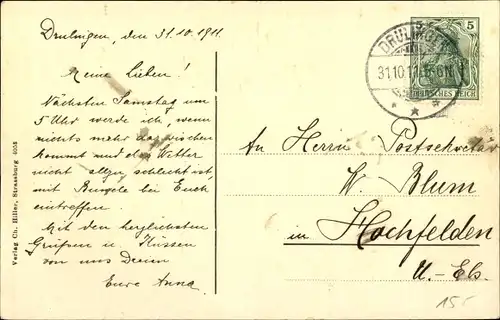 Drulingen, den 31.10.1911.
Meine Lieben!
Nächsten Samstag um
5 Uhr werde ich, wenn
nichts mehr dazwischen
kommt und das Wetter
nicht allzu schlecht ist,
mit bei Euch
eintreffen.
Mit den herzlichsten
Grüßen u. Küssen
von uns Dreien
Eure Anna
Verlag Ch. Hiller, Strassburg 4053
5
DRULINGEN
31.10.11.
DEUTSCHES REICH
An Herrn Postsekretär
W. Blum
in Hochfelden
U.-Els.
15